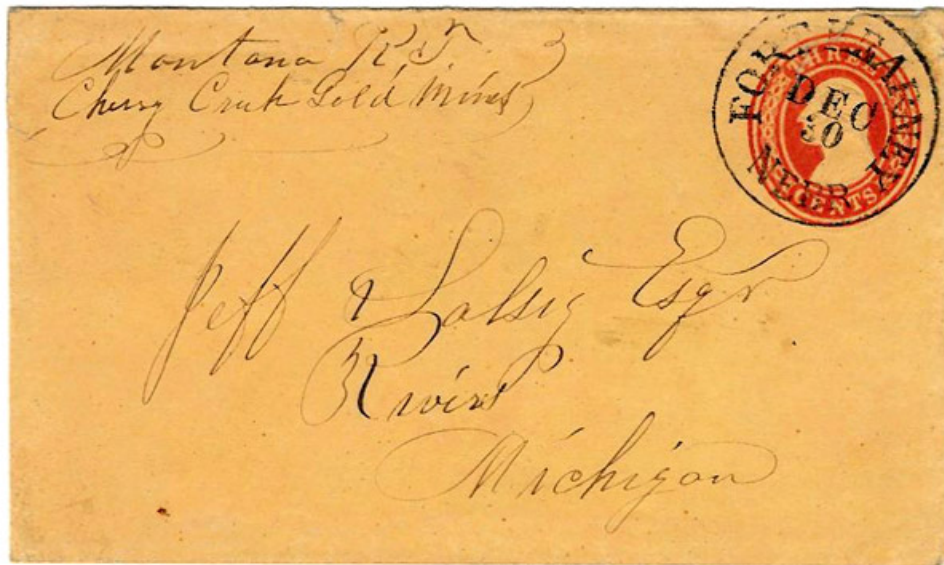 Montana K. T.
Cherry Creek Gold Mines
FORT KEARNEY
DEC
30
NEBR
THREE
CENTS
Jeff Salsig Esqr
3 Rivers
Michigan